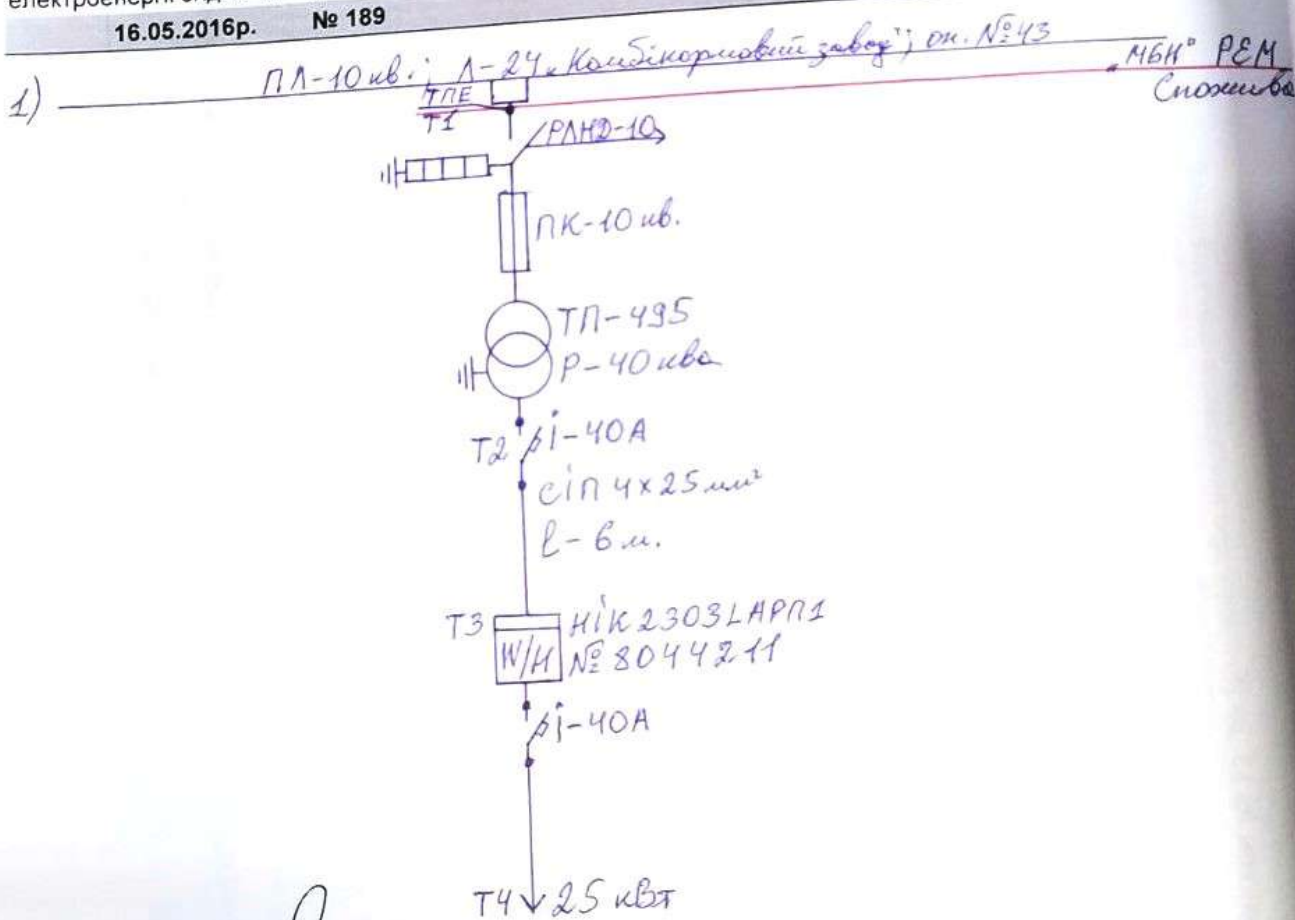 16.05.2016р. № 189
1) ПЛ-10 кв.; Л-24 „Комбікормовий завод"; оп. №43
„МБН" РЕМ
ТПЕ
Т1
Спожива
РЛНД-10
ПК-10 кв.
ТП-495
Р-40 ква
Т2 і-40А
сіп 4х25 мм²
l-6 м.
Т3 НіК 2303LАРП1
W/H № 8044211
і-40А
Т4 25 кВт